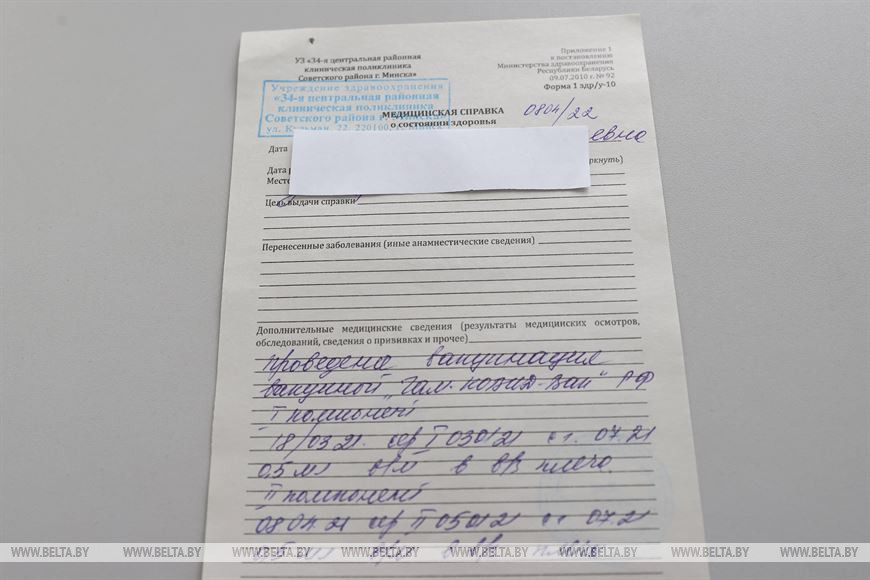 УЗ «34-я центральная районная
клиническая поликлиника
Советского района г. Минска»
Приложение 1
к постановлению
Министерства здравоохранения
Республики Беларусь
09.07.2010 г. № 92
Форма 1 здр/у-10
Учреждение здравоохранения
«34-я центральная районная
клиническая поликлиника
Советского района г. Минска»
ул. Кульман, 22, 220100, г. Минск
МЕДИЦИНСКАЯ СПРАВКА
о состоянии здоровья
0804/22
евна
Дата
Дата р
ркнуть)
Место
Цель выдачи справки
Перенесенные заболевания (иные анамнестические сведения)
Дополнительные медицинские сведения (результаты медицинских осмотров,
обследований, сведения о прививках и прочее)
проведена вакцинация
вакциной „Гам-КОВИД-Вак" РФ
I компонент
18/03 21. сер I 030121 с.г. 07.21
0,5 мл в/м в в/з плечо.
II компонент
08 04 21 сер II 050121 с.г. 07.21
0,5 мл в/м в
WWW.BELTA.BY WWW.BELTA.BY WWW.BELTA.BY WWW.BELTA.BY WWW.BELTA.BY WWW.BELTA.BY